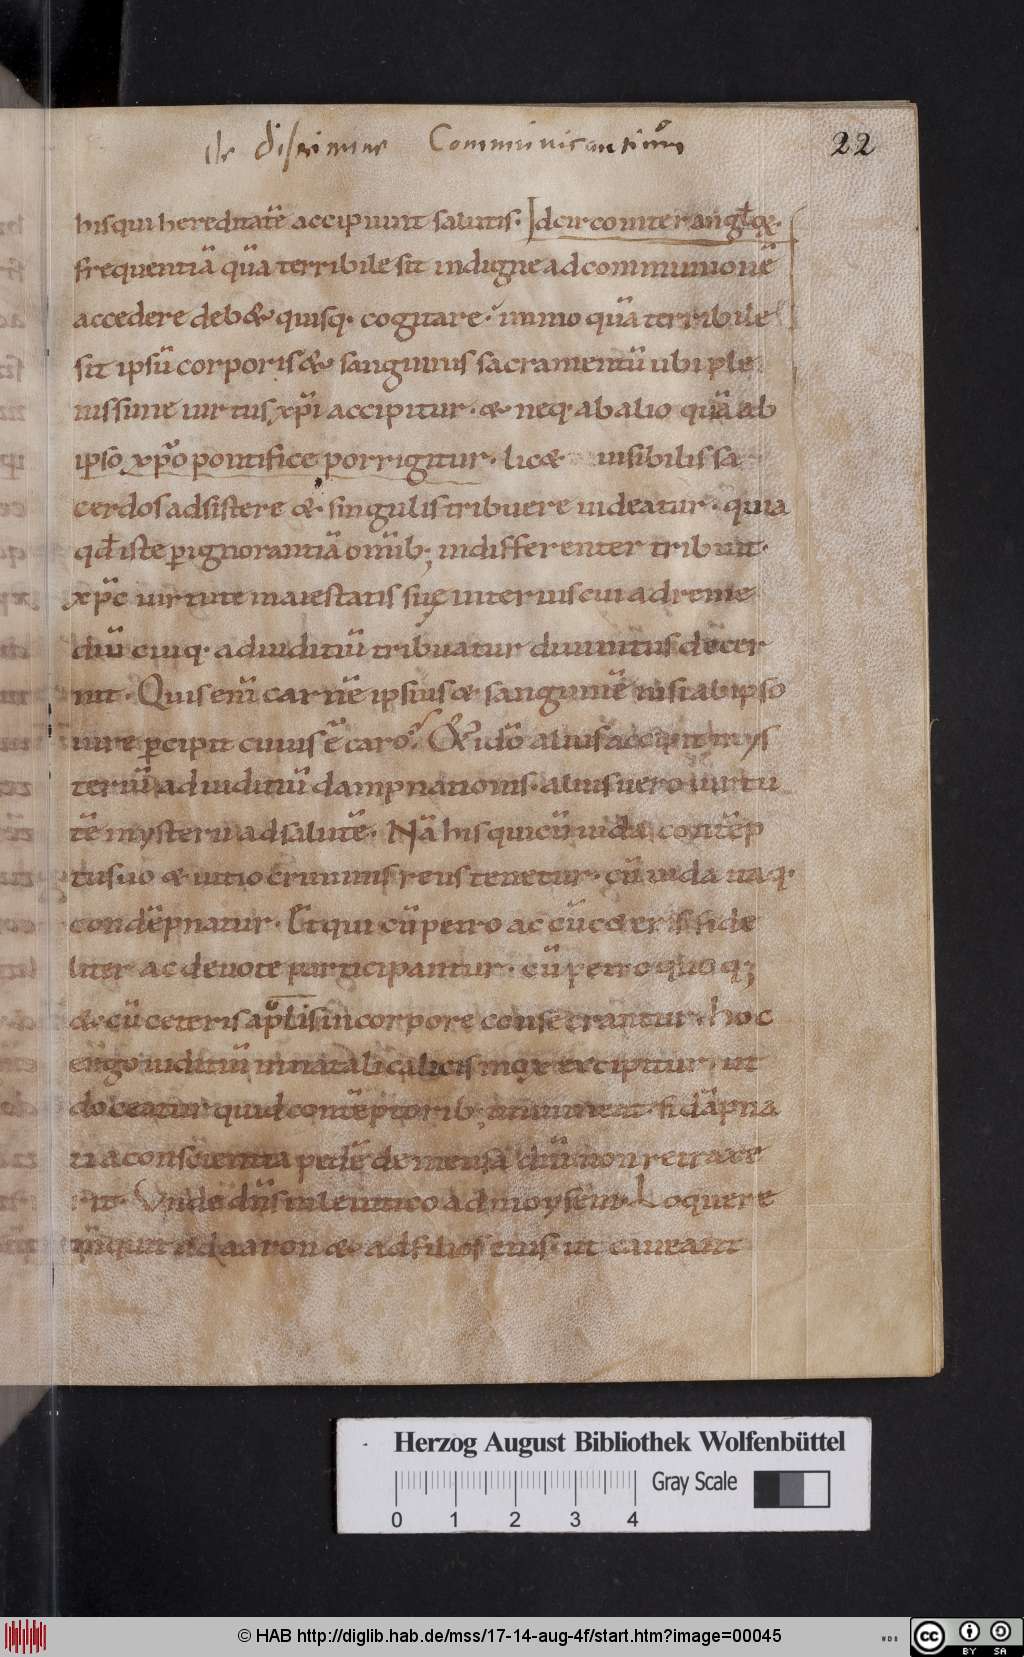 de discrimine Communicantium
22
his qui hereditatē accipiunt salutis. Idcirco inter angłoꝝ.
frequentiā quā terribile sit indigne ad communionē
accedere deb& quisq. cogitare. immo quā terribile
sit ipsū corporis & sanguinis sacramentū ubi ple
nissime uirtus xp̄i accipitur. & neq. ab alio quā ab
ipso xp̄o pontifice porrigitur. lic& uisibilis sa
cerdos adsistere & singulis tribuere uideatur. quia
qđ iste ꝑ ignorantiā omīb; indifferenter tribuit.
xp̄c uirtute maiestatis suę interius cui ad reme
diū cuiq. ad iuditiū tribuatur diuinitus decer
nit. Quis enī carnē ipsius & sanguinē nisi ab ipso
iure ꝑcipit cuius ē caro? & ideo alius accipit mys
teriū ad iuditiū dampnationis. alius uero uirtu
tē mysterii ad salutē. Nā his qui cū iuda contēp
tus uo & uitio criminis reus tenetur. cū iuda uaq.
condēpnatur. Et qui cū petro ac cū c&eris fide
liter ac deuote participantur. cū petro quoq;
& cū ceteris apłis in corpore consecrantur. hoc
ergo iuditiū in natali calicis mox excipitur. ut
doceatur quid contēptorib; immineat. si dāpna
ti a conscientia pedē de mensa dn̄i non retraxe
rit. Unde dn̄s in leuitico ad moysem. Loquere
inquit ad aaron & ad filios eius. ut caueant
Herzog August Bibliothek Wolfenbüttel
Gray Scale
0 1 2 3 4
© HAB http://diglib.hab.de/mss/17-14-aug-4f/start.htm?image=00045
WDB
cc BY SA